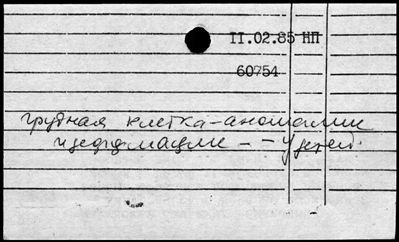 II.02.85 НП
60754
грудная клетка-аномалии
и деформации -- у детей.